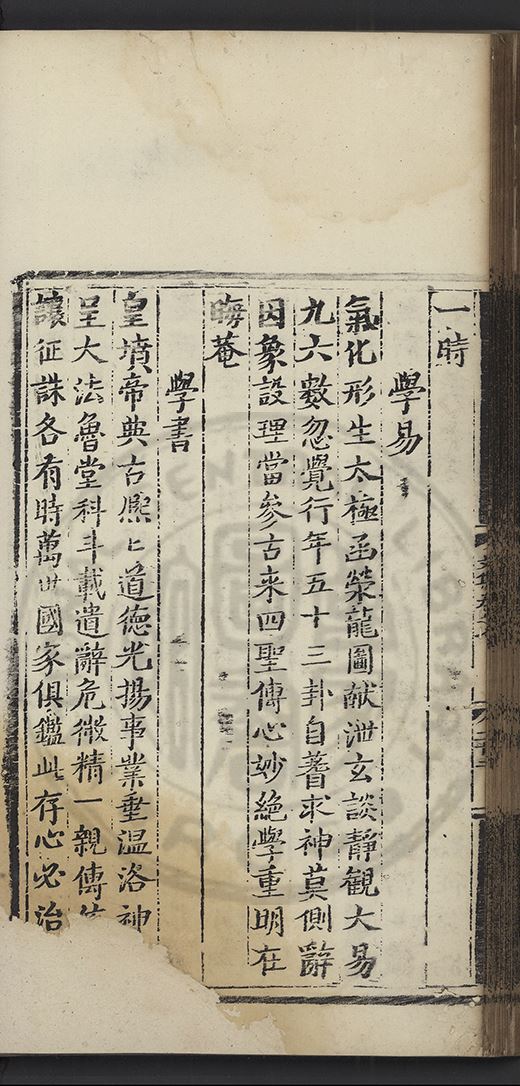 一時
學易
氣化形生太極函榮龍圖献泄玄談靜觀大易
九六數忽覺行年五十三卦自蓍求神莫側辭
因象設理當參古来四聖傳心妙絶學重明在
晦菴
學書
皇墳帝典古熈〻道德光揚事業垂温洛神
呈大法魯堂科斗載遺辭危微精一親傳
讓征誅各有時萬世國家俱鑑此存心必治